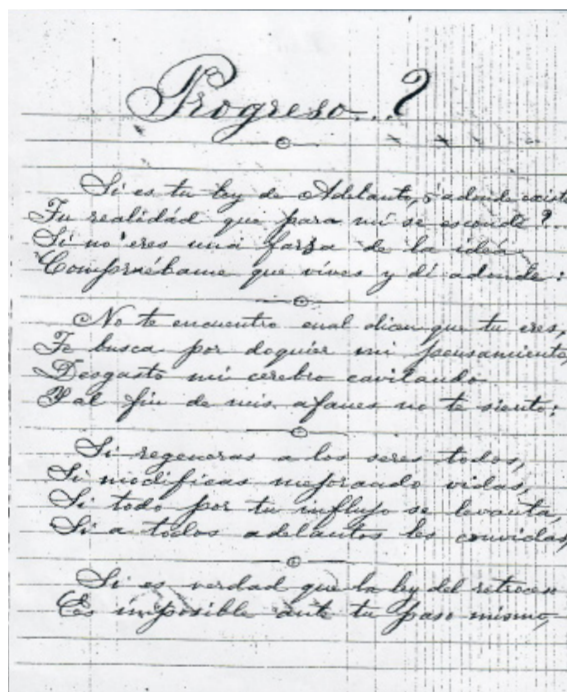 Progreso..?
Si es tu ley de Adelanto, ¿adonde existe
Tu realidad que para mí se esconde?
Si no eres una farsa de la idea
Compruébame que vives y dí adonde:
No te encuentro cual dicen que tu eres,
Te busca por doquier mi pensamiento,
Desgasto mi cerebro cavilando
Y al fin de mis afanes no te siento:
Si regeneras a los seres todos,
Si modificas mejorando vidas,
Si todo por tu influjo se levanta,
Si a todos adelantos les convidas,
Si es verdad que la ley del retroceso
Es imposible ante tu paso mismo,